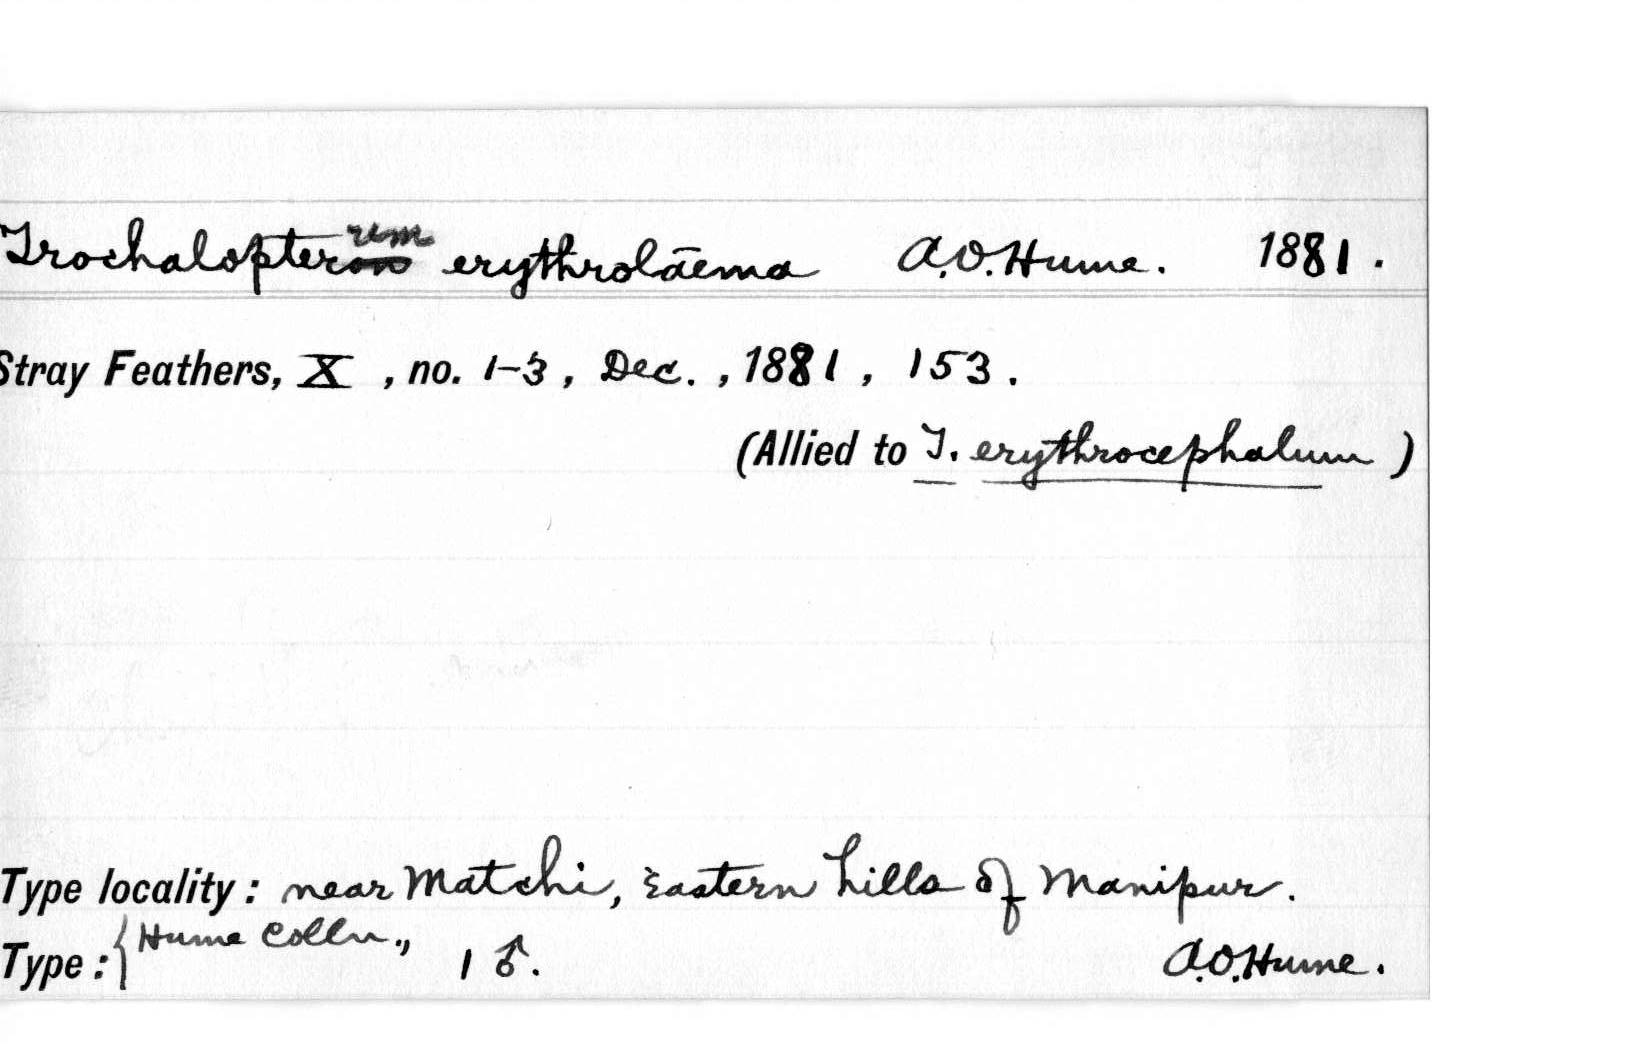 Trochalopteron rum erythrolāema A.O. Hume. 1881.
Stray Feathers, X, no. 1-3, Dec., 1881, 153.
(Allied to T. erythrocephalum)
Type locality: near Matchi, Eastern hills of Manipur.
Type: { Hume Colln., 1 ♂. A.O. Hume.